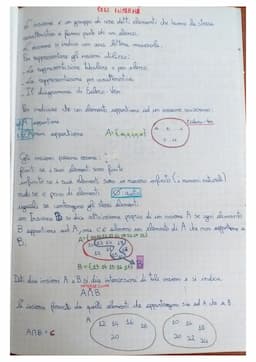 GLI INSIEMI
L'insieme è un gruppo di cose detti elementi che hanno la stessa
caratteristica o fanno parte di un elenco.
L'insieme si indica con una lettera maiuscola.
Per rappresentare gli insiemi utilizzo:
- La rappresentazione tabulare o per elenco.
- La rappresentazione per caratteristica.
- Il diagramma di Eulero-Ven.
Per indicare che un elemento appartiene ad un insieme scriviamo:
appartiene
non appartiene
Gli insiemi possono essere:
finiti se i suoi elementi sono finiti
infiniti se i suoi elementi sono un numero infinito (i numeri naturali)
vuoti se è privo di elementi
uguali se contengono gli stessi elementi
un Insieme B si dice sottoinsieme proprio di un insieme A se ogni elemento
B appartiene ad A, ma c'è almeno un elemento di A che non appartiene a
B.
Dati due insiemi A e B si dice intersezione di tali insiemi e si indica
A∩B
l'insieme formato da quelli elementi che appartengono sia ad A che a B
A
12 14 16 18
20
10 14 18
20 22 24
A∩B = C